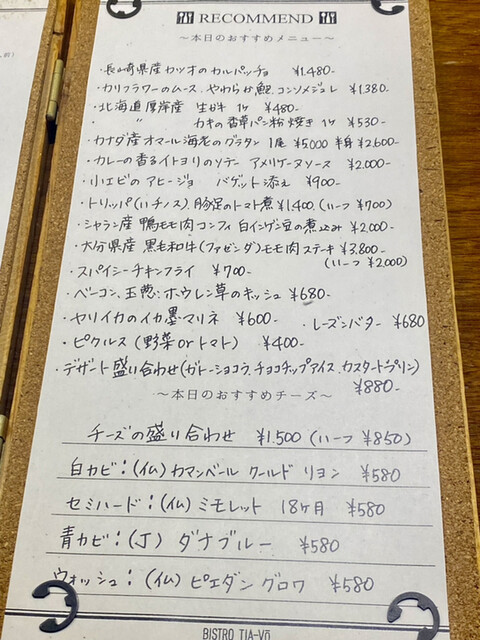 RECOMMEND
～本日のおすすめメニュー～
・長崎県産カツオのカルパッチョ ¥1.480-
・カリフラワーのムース、やわらか鮑、コンソメジュレ ¥1.380-
・北海道厚岸産 生がキ 1ケ ¥480-
〃 カキの香草パン粉焼き 1ケ ¥530-
・カナダ産オマール海老のグラタン 1尾 ¥5.000 半身 ¥2.600-
・カレーの香るイトヨリのソテー アメリケーヌソース ¥2.000-
・小エビのアヒージョ バゲット添え ¥900-
・トリッパ(ハチノス)、豚足のトマト煮 ¥1.400 (ハーフ ¥700)
・シャラン産 鴨モモ肉コンフィ 白インゲン豆の煮込み ¥2.000-
・大分県産 黒毛和牛(ファゼンダ)モモ肉ステーキ ¥3.800-
(ハーフ ¥2.000)
・スパイシーチキンフライ ¥700-
・ベーコン、玉葱、ホウレン草のキッシュ ¥680-
・ヤリイカのイカ墨マリネ ¥600- ・レーズンバター ¥680
・ピクルス (野菜orトマト) ¥400-
・デザート盛り合わせ(ガトーショコラ、チョコチップアイス、カスタードプリン)
¥880-
～本日のおすすめチーズ～
チーズの盛り合わせ ¥1.500 (ハーフ ¥850)
白カビ：(仏)カマンベール クールド リヨン ¥580
セミハード：(仏)ミモレット 18ヶ月 ¥580
青カビ：(丁) ダナブルー ¥580
ウォッシュ：(仏)ピエダングロワ ¥580
BISTRO TIA-Vō